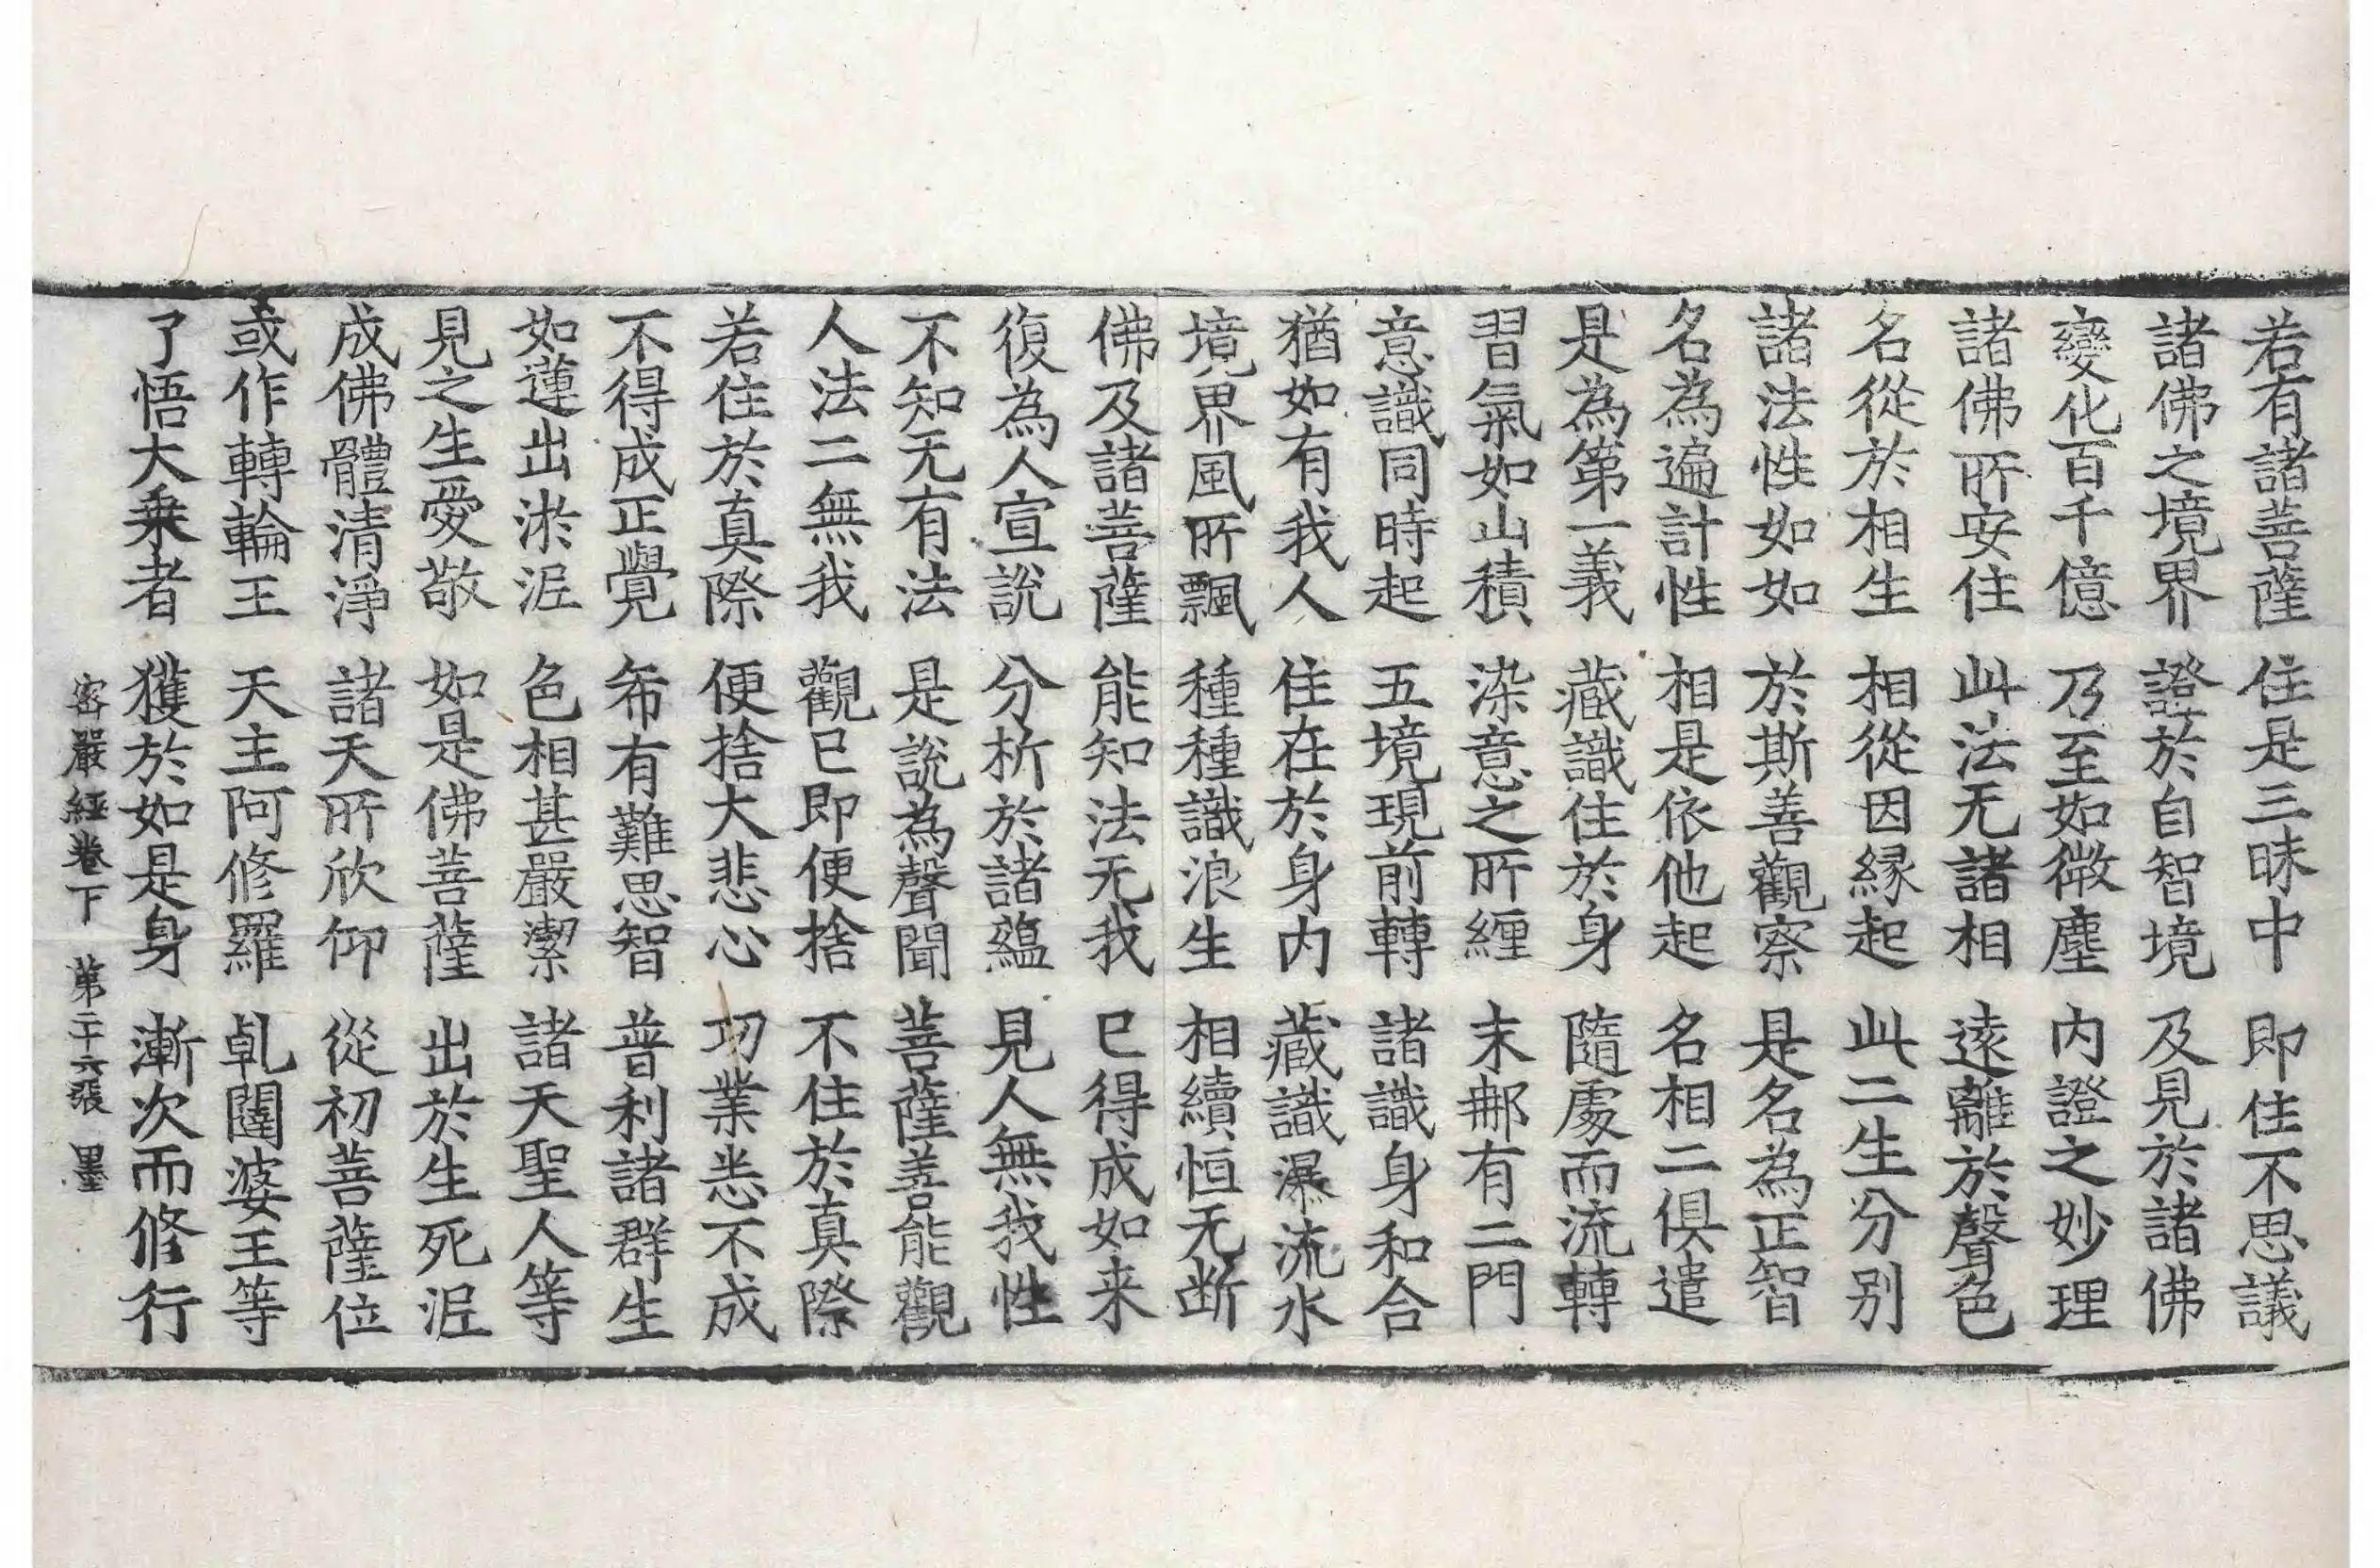 若有諸菩薩　住是三昧中　即住不思議
諸佛之境界　證於自智境　及見於諸佛
變化百千億　乃至如微塵　内證之妙理
諸佛所安住　此法无諸相　遠離於聲色
名從於相生　相從因縁起　此二生分别
諸法性如如　於斯善觀察　是名為正智
名為遍計性　相是依他起　名相二俱遣
是為第一義　藏識住於身　隨處而流轉
習氣如山積　染意之所纒　末那有二門
意識同時起　五境現前轉　諸識身和合
猶如有我人　住在於身内　藏識瀑流水
境界風所飄　種種識浪生　相續恒无断
佛及諸菩薩　能知法无我　已得成如来
復為人宣說　分析於諸蘊　見人無我性
不知无有法　是說為聲聞　菩薩善能觀
人法二無我　觀已即便捨　不住於真際
若住於真際　便捨大悲心　功業悉不成
不得成正覺　希有難思智　普利諸群生
如蓮出淤泥　色相甚嚴潔　諸天聖人等
見之生愛敬　如是佛菩薩　出於生死泥
成佛體清淨　諸天所欣仰　從初菩薩位
或作轉輪王　天主阿修羅　乹闥婆王等
了悟大乗者　獲於如是身　漸次而修行
密嚴經卷下　第二十六張　墨